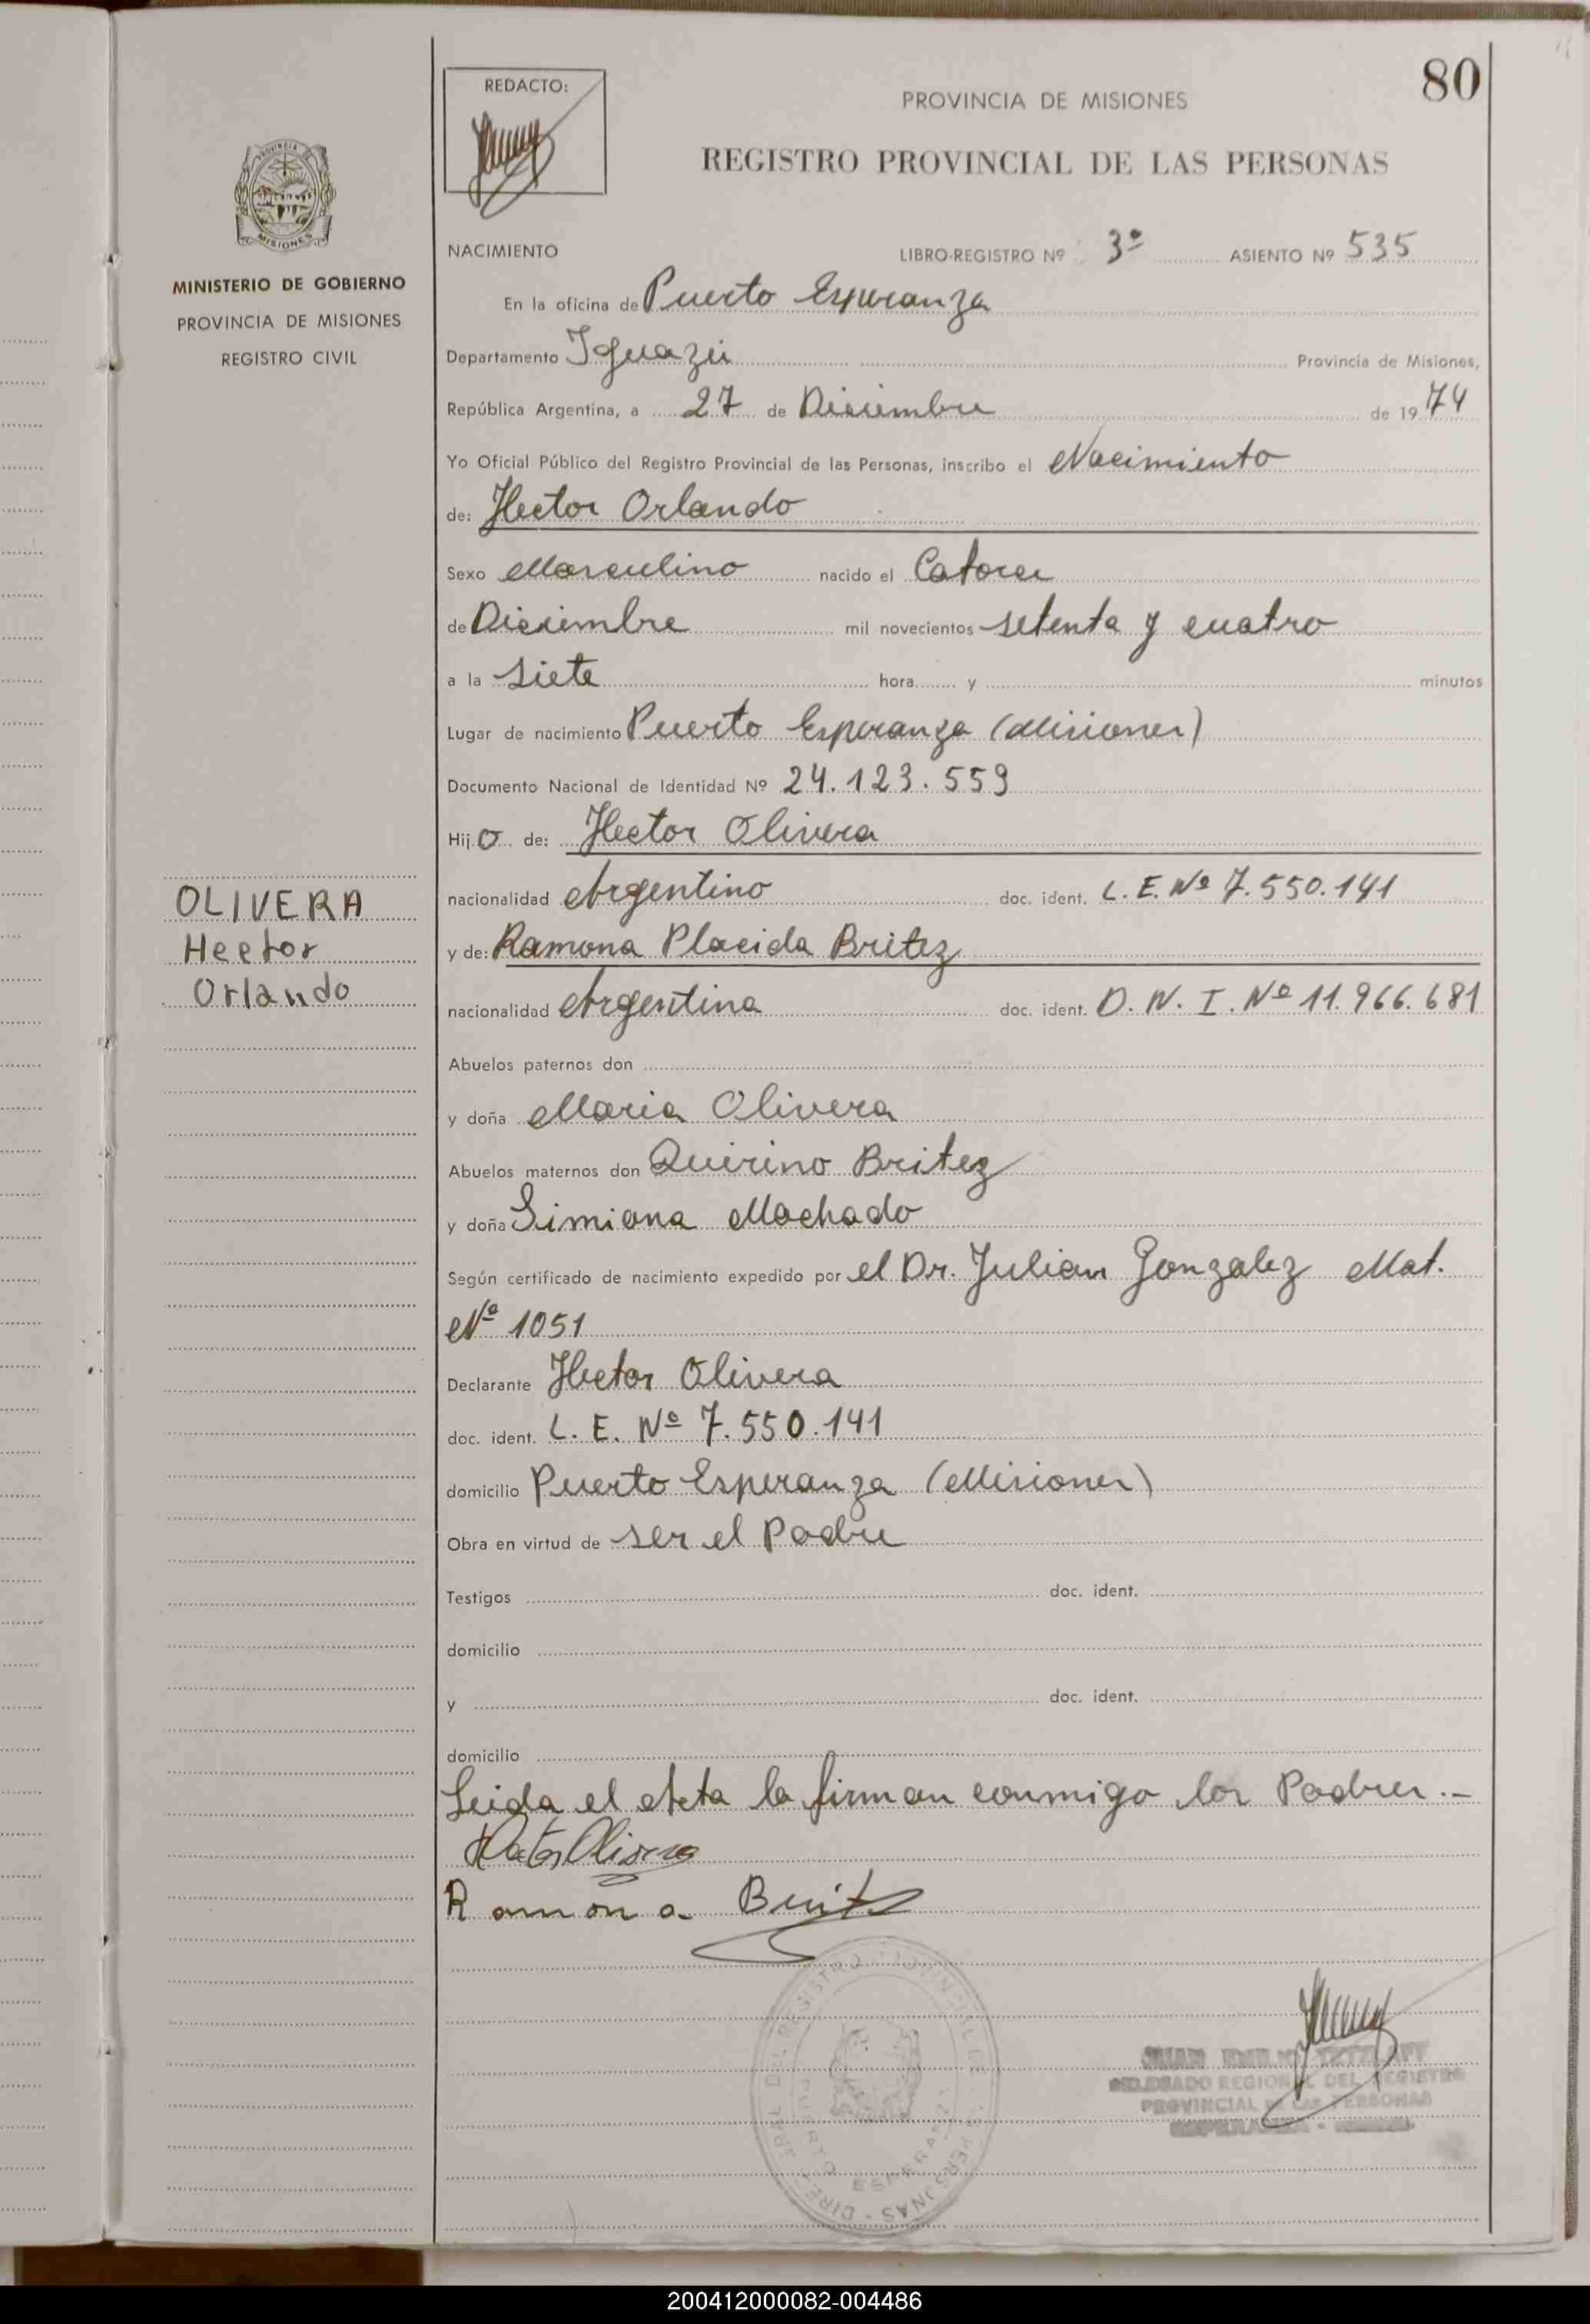 80
REDACTO:
PROVINCIA DE MISIONES
REGISTRO PROVINCIAL DE LAS PERSONAS
PROVINCIA DE MISIONES
MINISTERIO DE GOBIERNO
PROVINCIA DE MISIONES
REGISTRO CIVIL
NACIMIENTO LIBRO-REGISTRO Nº 3º ASIENTO Nº 535
En la oficina de Puerto Esperanza
Departamento Iguazú Provincia de Misiones,
República Argentina, a 27 de Diciembre de 19 74
Yo Oficial Público del Registro Provincial de las Personas, inscribo el Nacimiento
de: Hector Orlando
Sexo Masculino nacido el Catorce
de Diciembre mil novecientos setenta y cuatro
a la siete hora y minutos
Lugar de nacimiento Puerto Esperanza (Misiones)
Documento Nacional de Identidad Nº 24.123.559
Hij o de: Hector Olivera
OLIVERA
Hector
Orlando
nacionalidad Argentino doc. ident. L. E. Nº 7.550.141
y de: Ramona Placida Britez
nacionalidad Argentina doc. ident. D. N. I. Nº 11.966.681
Abuelos paternos don
y doña Maria Olivera
Abuelos maternos don Quirino Britez
y doña Simiana Machado
Según certificado de nacimiento expedido por el Dr. Julian Gonzalez Mat.
Nº 1051
Declarante Hector Olivera
doc. ident. L. E. Nº 7.550.141
domicilio Puerto Esperanza (Misiones)
Obra en virtud de ser el Padre
Testigos doc. ident.
domicilio
y doc. ident.
domicilio
Leida el Acta la firman conmigo los Padres.-
Hector Olivera
Ramona Britez
DELEGADO REGIONAL DEL REGISTRO
PROVINCIAL DE LAS PERSONAS
ESPERANZA
200412000082-004486